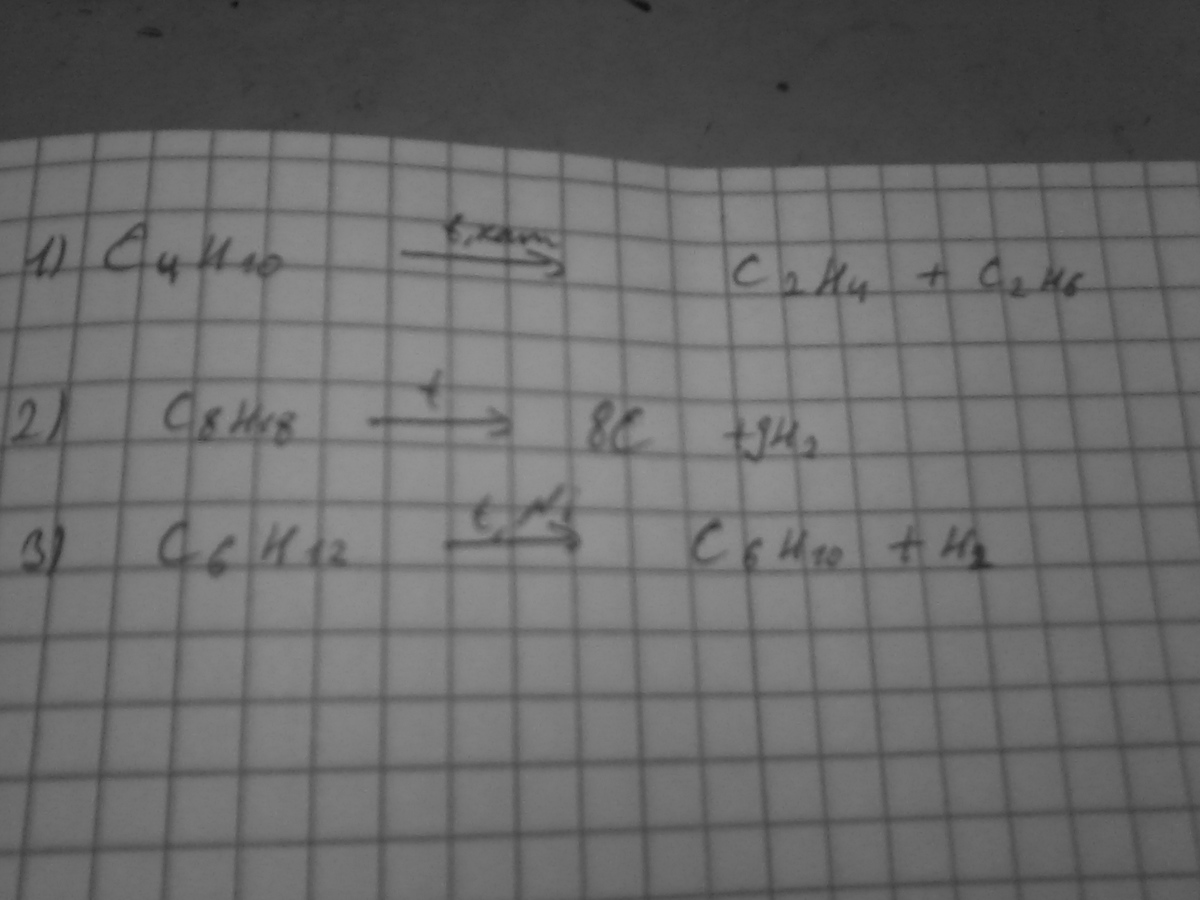 1) C₄H₁₀ t,кат → C₂H₄ + C₂H₆
2) C₈H₁₈ t → 8C + 9H₂
3) C₆H₁₂ t, Ni → C₆H₁₀ + H₂